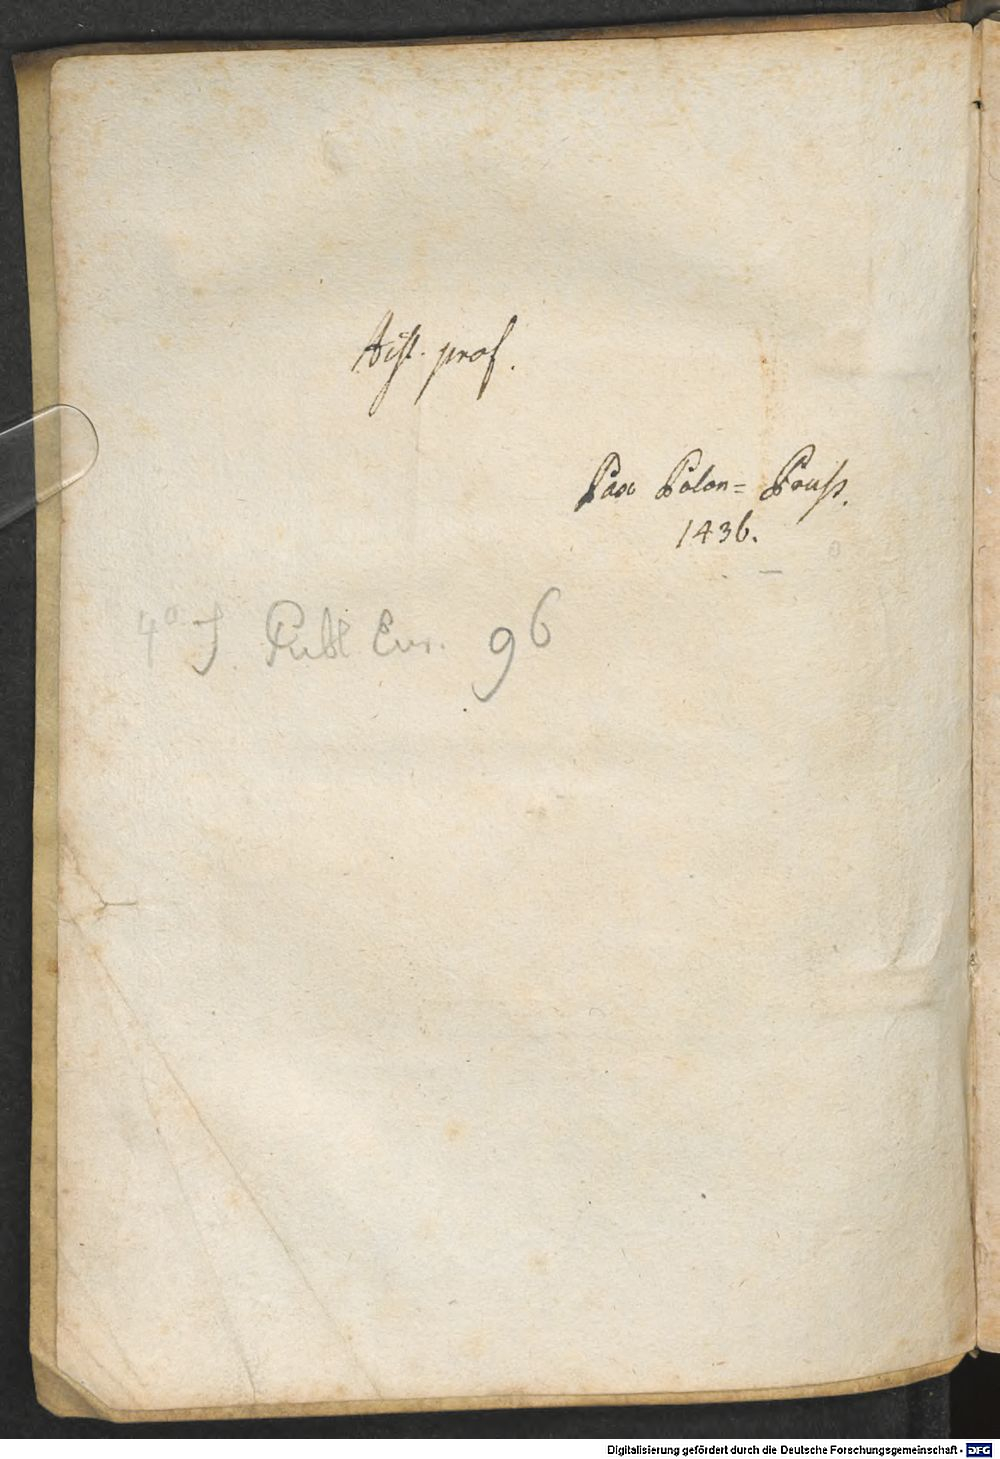 Hist. prof.
Pax Polon= Pruss.
1436.
4° J. Publ Eur. 96
Digitalisierung gefördert durch die Deutsche Forschungsgemeinschaft - DFG